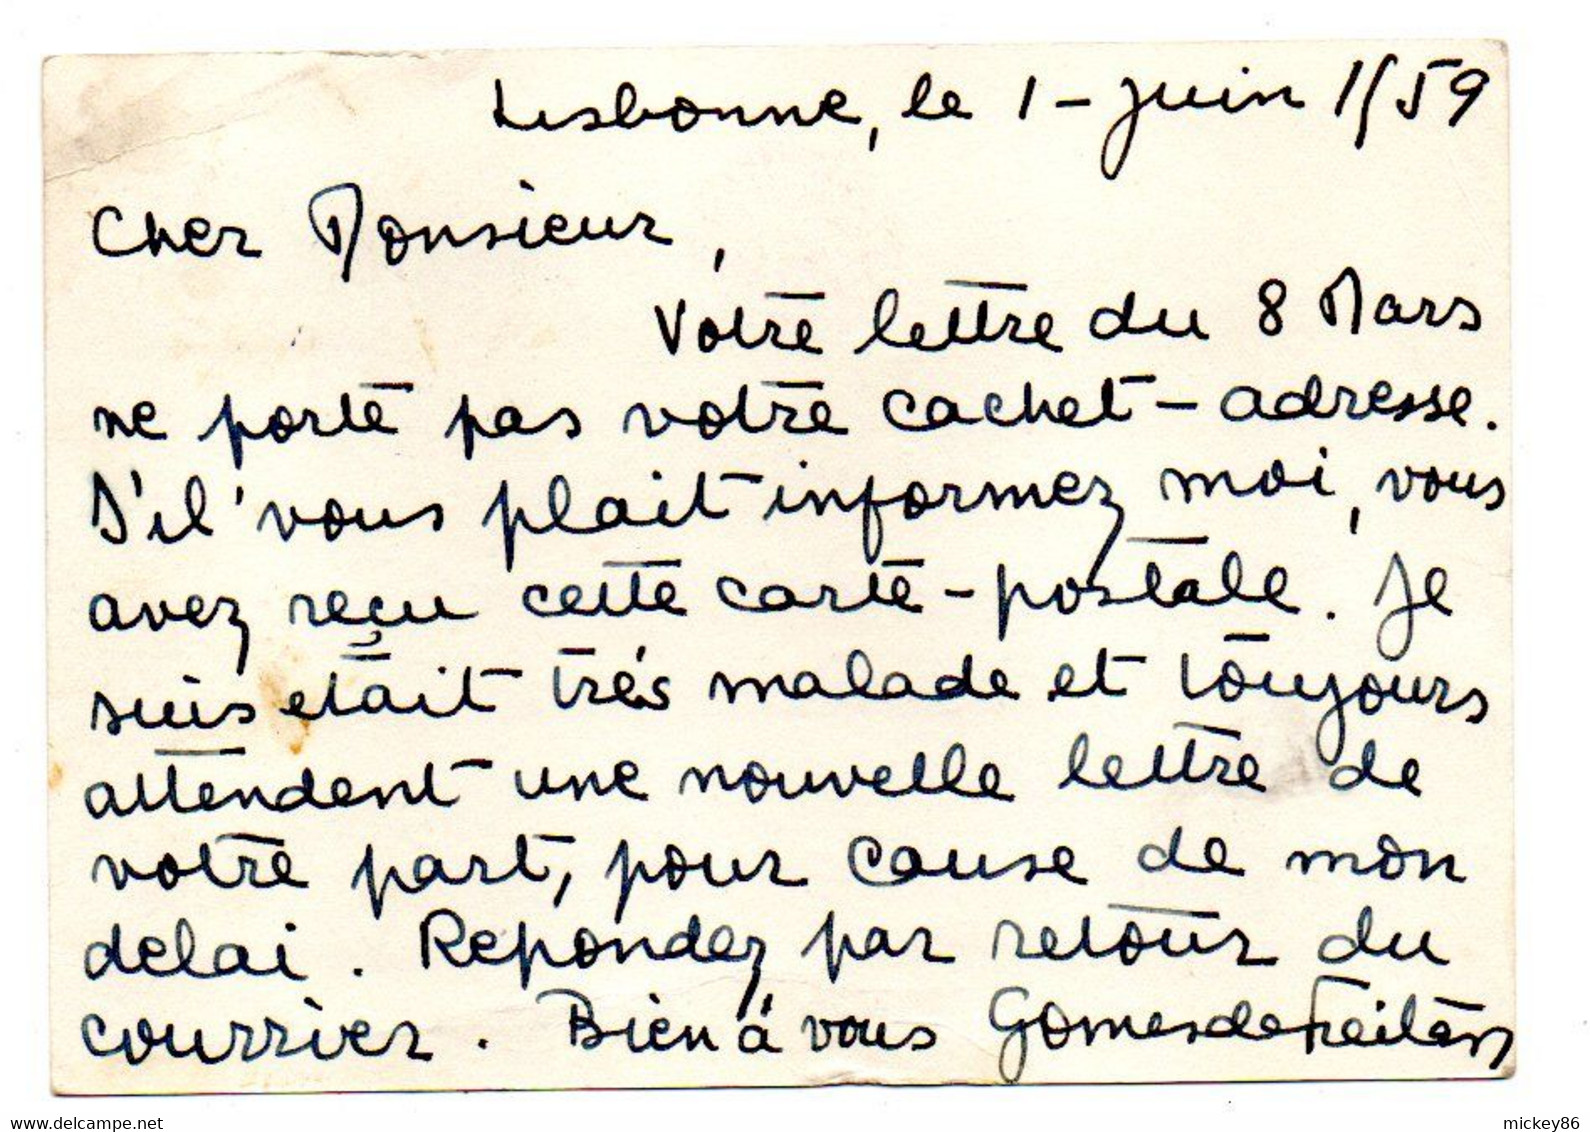 Lisbonne, le 1 - Juin 1/59
Cher Monsieur,
Votre lettre du 8 Mars
ne porte pas votre cachet-adresse.
S'il vous plait informez moi, vous
avez reçu cette carte-postale. Je
suis etait trés malade et toujours
attendent une nouvelle lettre de
votre part, pour cause de mon
delai. Repondez par retour du
courrier. Bien á vous Gomes de Freitas
www.delcampe.net
mickey86